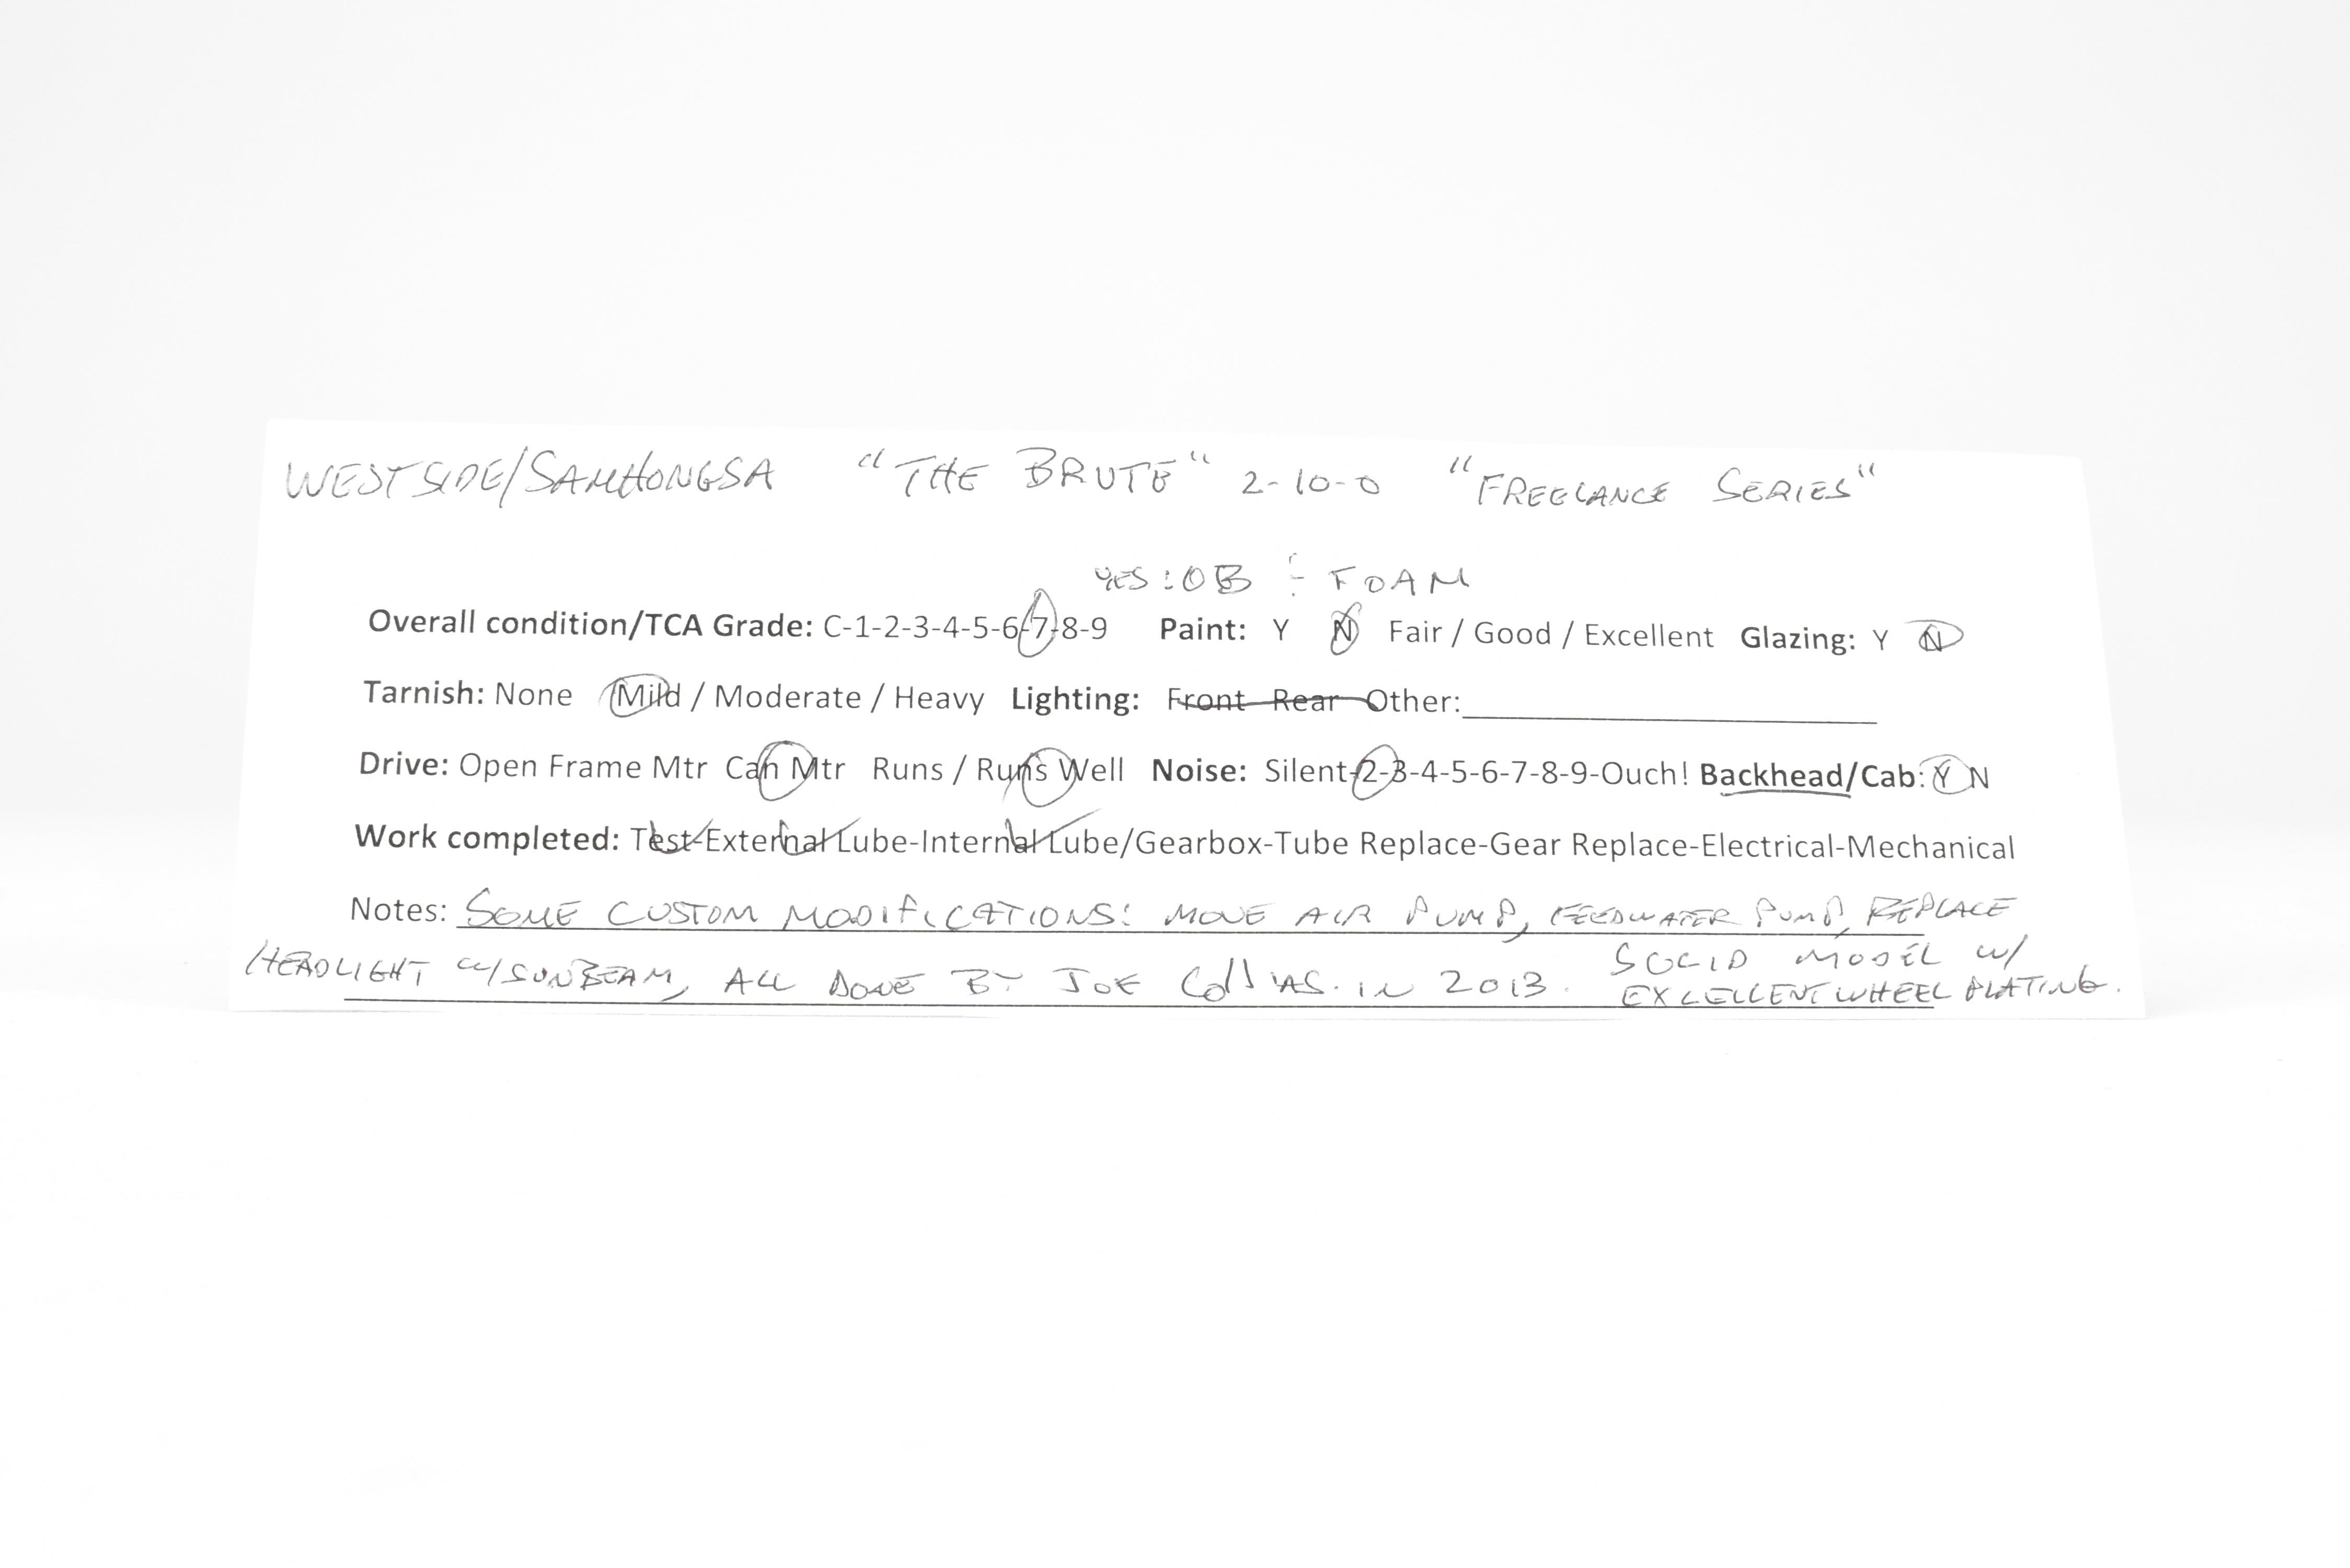 WESTSIDE/SAMHONGSA "THE BRUTE" 2-10-0 "FREELANCE SERIES"
YES: OB & FOAM
Overall condition/TCA Grade: C-1-2-3-4-5-6-7-8-9 Paint: Y N Fair / Good / Excellent Glazing: Y N
Tarnish: None Mild / Moderate / Heavy Lighting: Front Rear Other:
Drive: Open Frame Mtr Can Mtr Runs / Runs Well Noise: Silent-2-3-4-5-6-7-8-9-Ouch! Backhead/Cab: Y N
Work completed: Test-External Lube-Internal Lube/Gearbox-Tube Replace-Gear Replace-Electrical-Mechanical
Notes: SOME CUSTOM MODIFICATIONS: MOVE AIR PUMP, FEEDWATER PUMP, REPLACE
HEADLIGHT W/SUNBEAM, ALL DONE BY JOE COLLIAS. IN 2013. SOLID MODEL W/
EXCELLENT WHEEL PLATING.